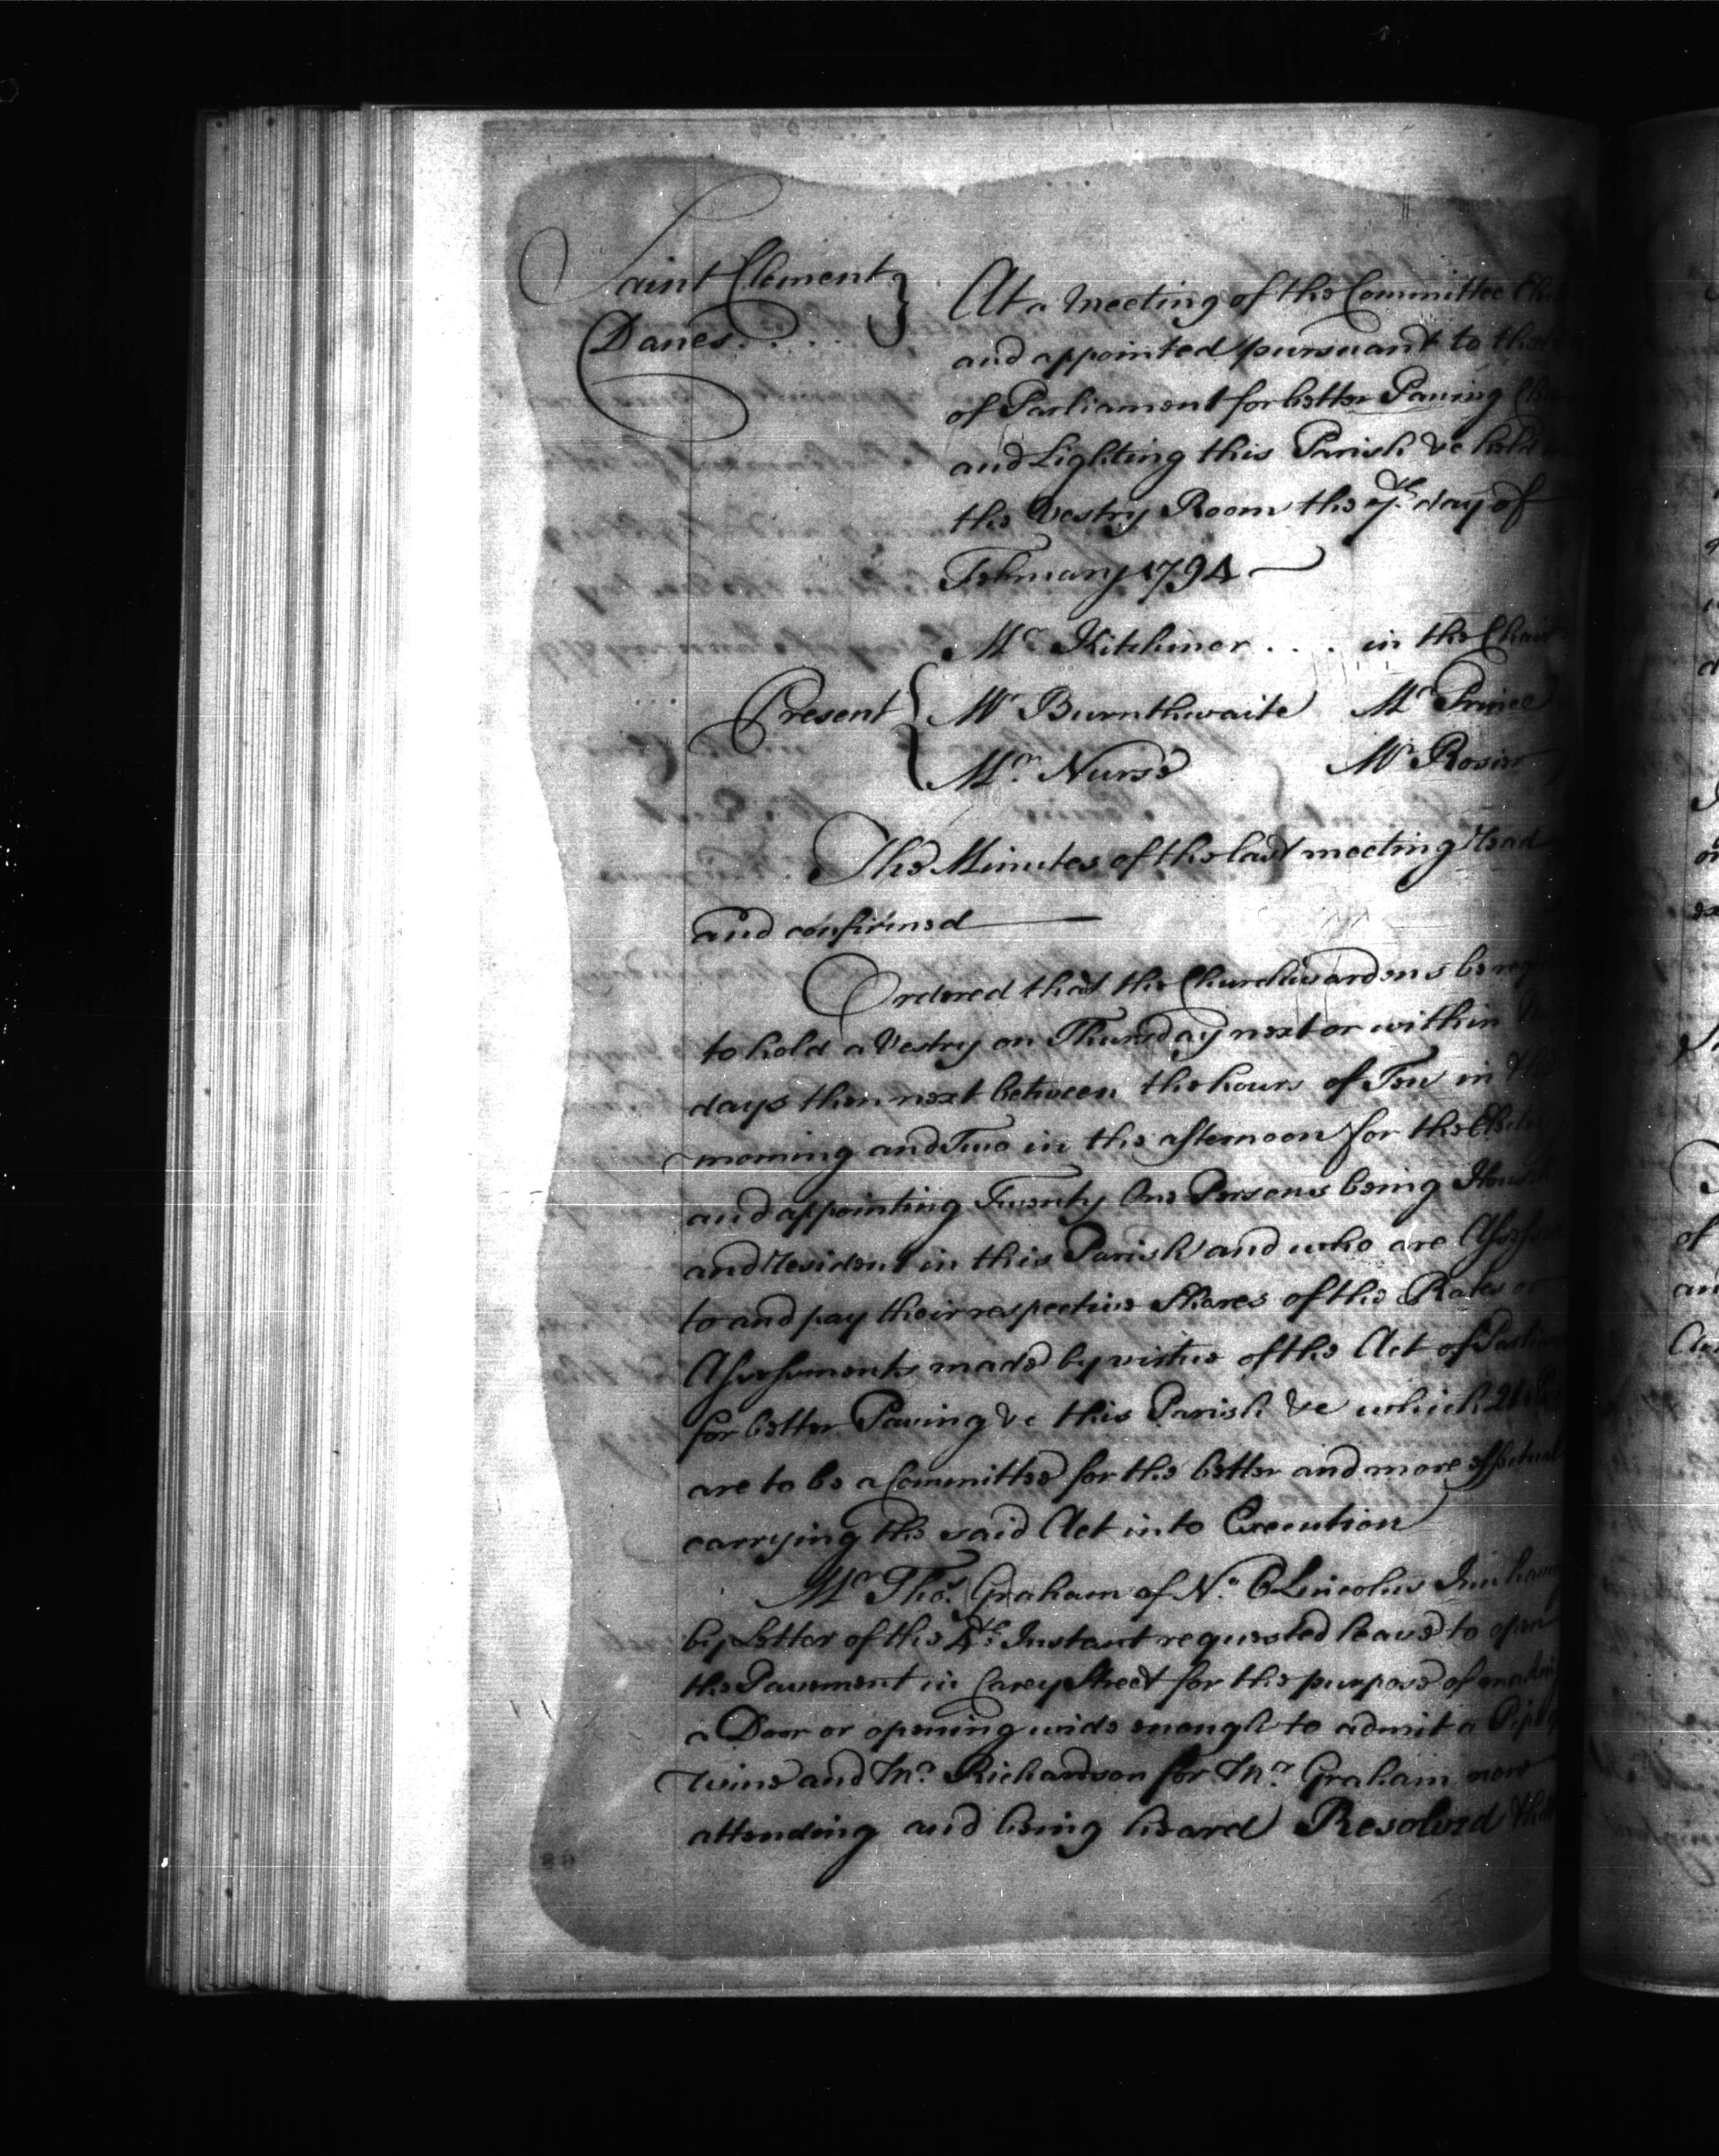 Saint Clement
Danes . . . .
At a Meeting of the Committee
and appointed pursuant to the
of Parliament for better Paving
and Lighting this Parish &c held
the Vestry Room the 7th. day of
February 1794
Mr Kitchiner . . . . in the Chair
Present Mr Burnthwaite Mr Prince
Mr. Nurse Mr Rosier
The Minutes of the last meeting read
and confirmed
Ordered that the Churchwardens be
to hold a Vestry on Thursday next or within
days then next between the hours of Ten in
morning and Two in the afternoon for the
and appointing Twenty One Persons being
and resident in this Parish and who are
to and pay their respective Shares of the Rates or
Assessments made by virtue of the Act of
for better Paving &c this Parish &c which 21
are to be a Committee for the better and more effectual
carrying the said Act into Execution
Mr Thos. Graham of No. 6 Lincolns Inn
by Letter of the 4th. Instant requested leave to open
the Pavement in Carey Street for the purpose of
a Door or opening wide enough to admit a Pipe
Wine and Mr. Richardson for Mr. Graham now
attending and being heard Resolved